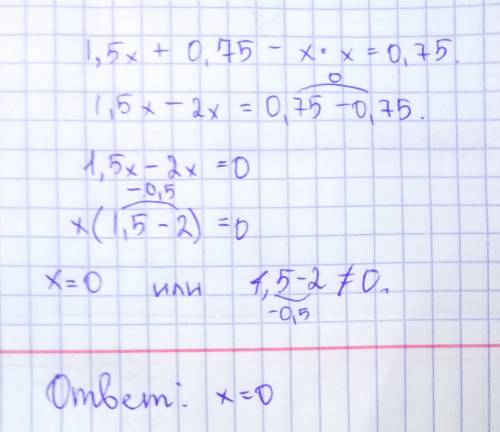 1,5x + 0,75 - x · x = 0,75.
0
1,5x - 2x = 0,75 - 0,75.
1,5x - 2x = 0
-0,5
x(1,5 - 2) = 0
x = 0 или 1,5 - 2 ≠ 0.
-0,5
Ответ: x = 0